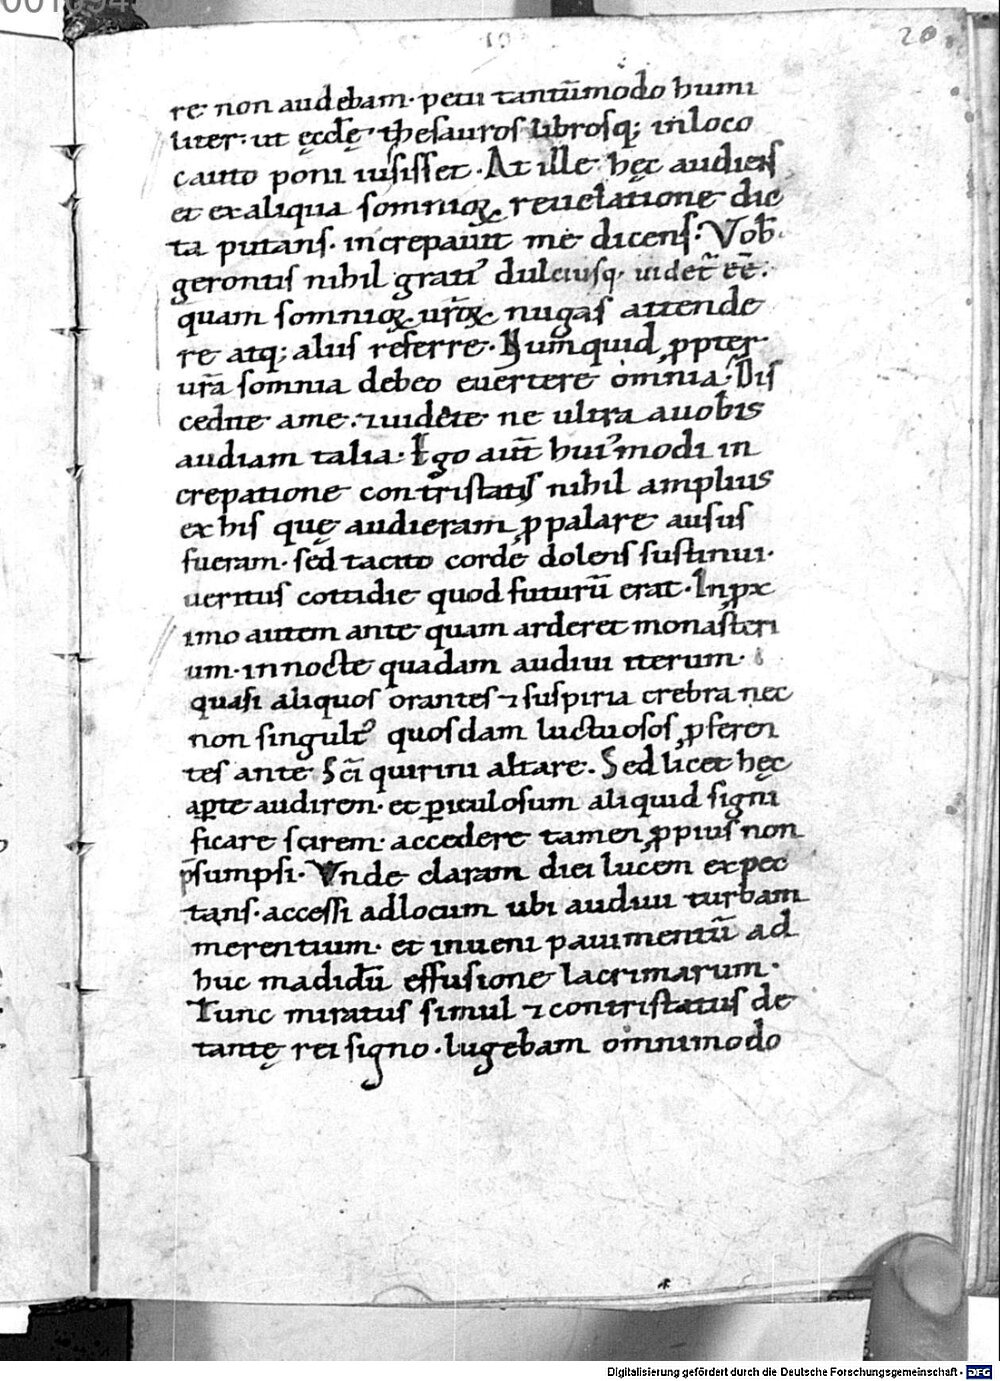 20
re non audebam · petii tantūmodo humi
liter · ut ęcclę thesauros librosq; in loco
cauto poni iusisset · At ille hęc audiens
et ex aliqua somnioꝝ reuelatione dic
ta putans · increpauit me dicens · Vob̄
gerontis nihil grati᾽ dulciusq· uidet̄ eē ·
quam somnioꝝ ur̄oꝝ nugas attende
re atq; aliis referre · Numquid ꝓpter
ur̄a somnia debeo euertere omnia · Dis
cedite a me · ⁊ uidete ne ultra a uobis
audiam talia · Ego aūt hui᾽modi in
crepatione contristatus nihil amplius
ex his quę audieram ꝓpalare ausus
fueram · sed tacito corde dolens sustinui ·
ueritus cottidie quod futurū erat · In ꝓx
imo autem ante quam arderet monasteri
um · in nocte quadam audiui iterum ·
quasi aliquos orantes ⁊ suspiria crebra nec
non singult᾽ quosdam luctuosos ꝓferen
tes ante Sc̄i quirini altare. Sed licet hęc
aꝑte audirem · et ꝑiculosum aliquid signi
ficare scirem · accedere tamen ꝓpius non
p̄sumpsi · Vnde claram diei lucem expec
tans · accessi ad locum ubi audiui turbam
merentium · et inueni pauimentū ad
huc madidū effusione lacrimarum ·
Tunc miratus simul ⁊ contristatus de
tantę rei signo · lugebam omnimodo
Digitalisierung gefördert durch die Deutsche Forschungsgemeinschaft - DFG